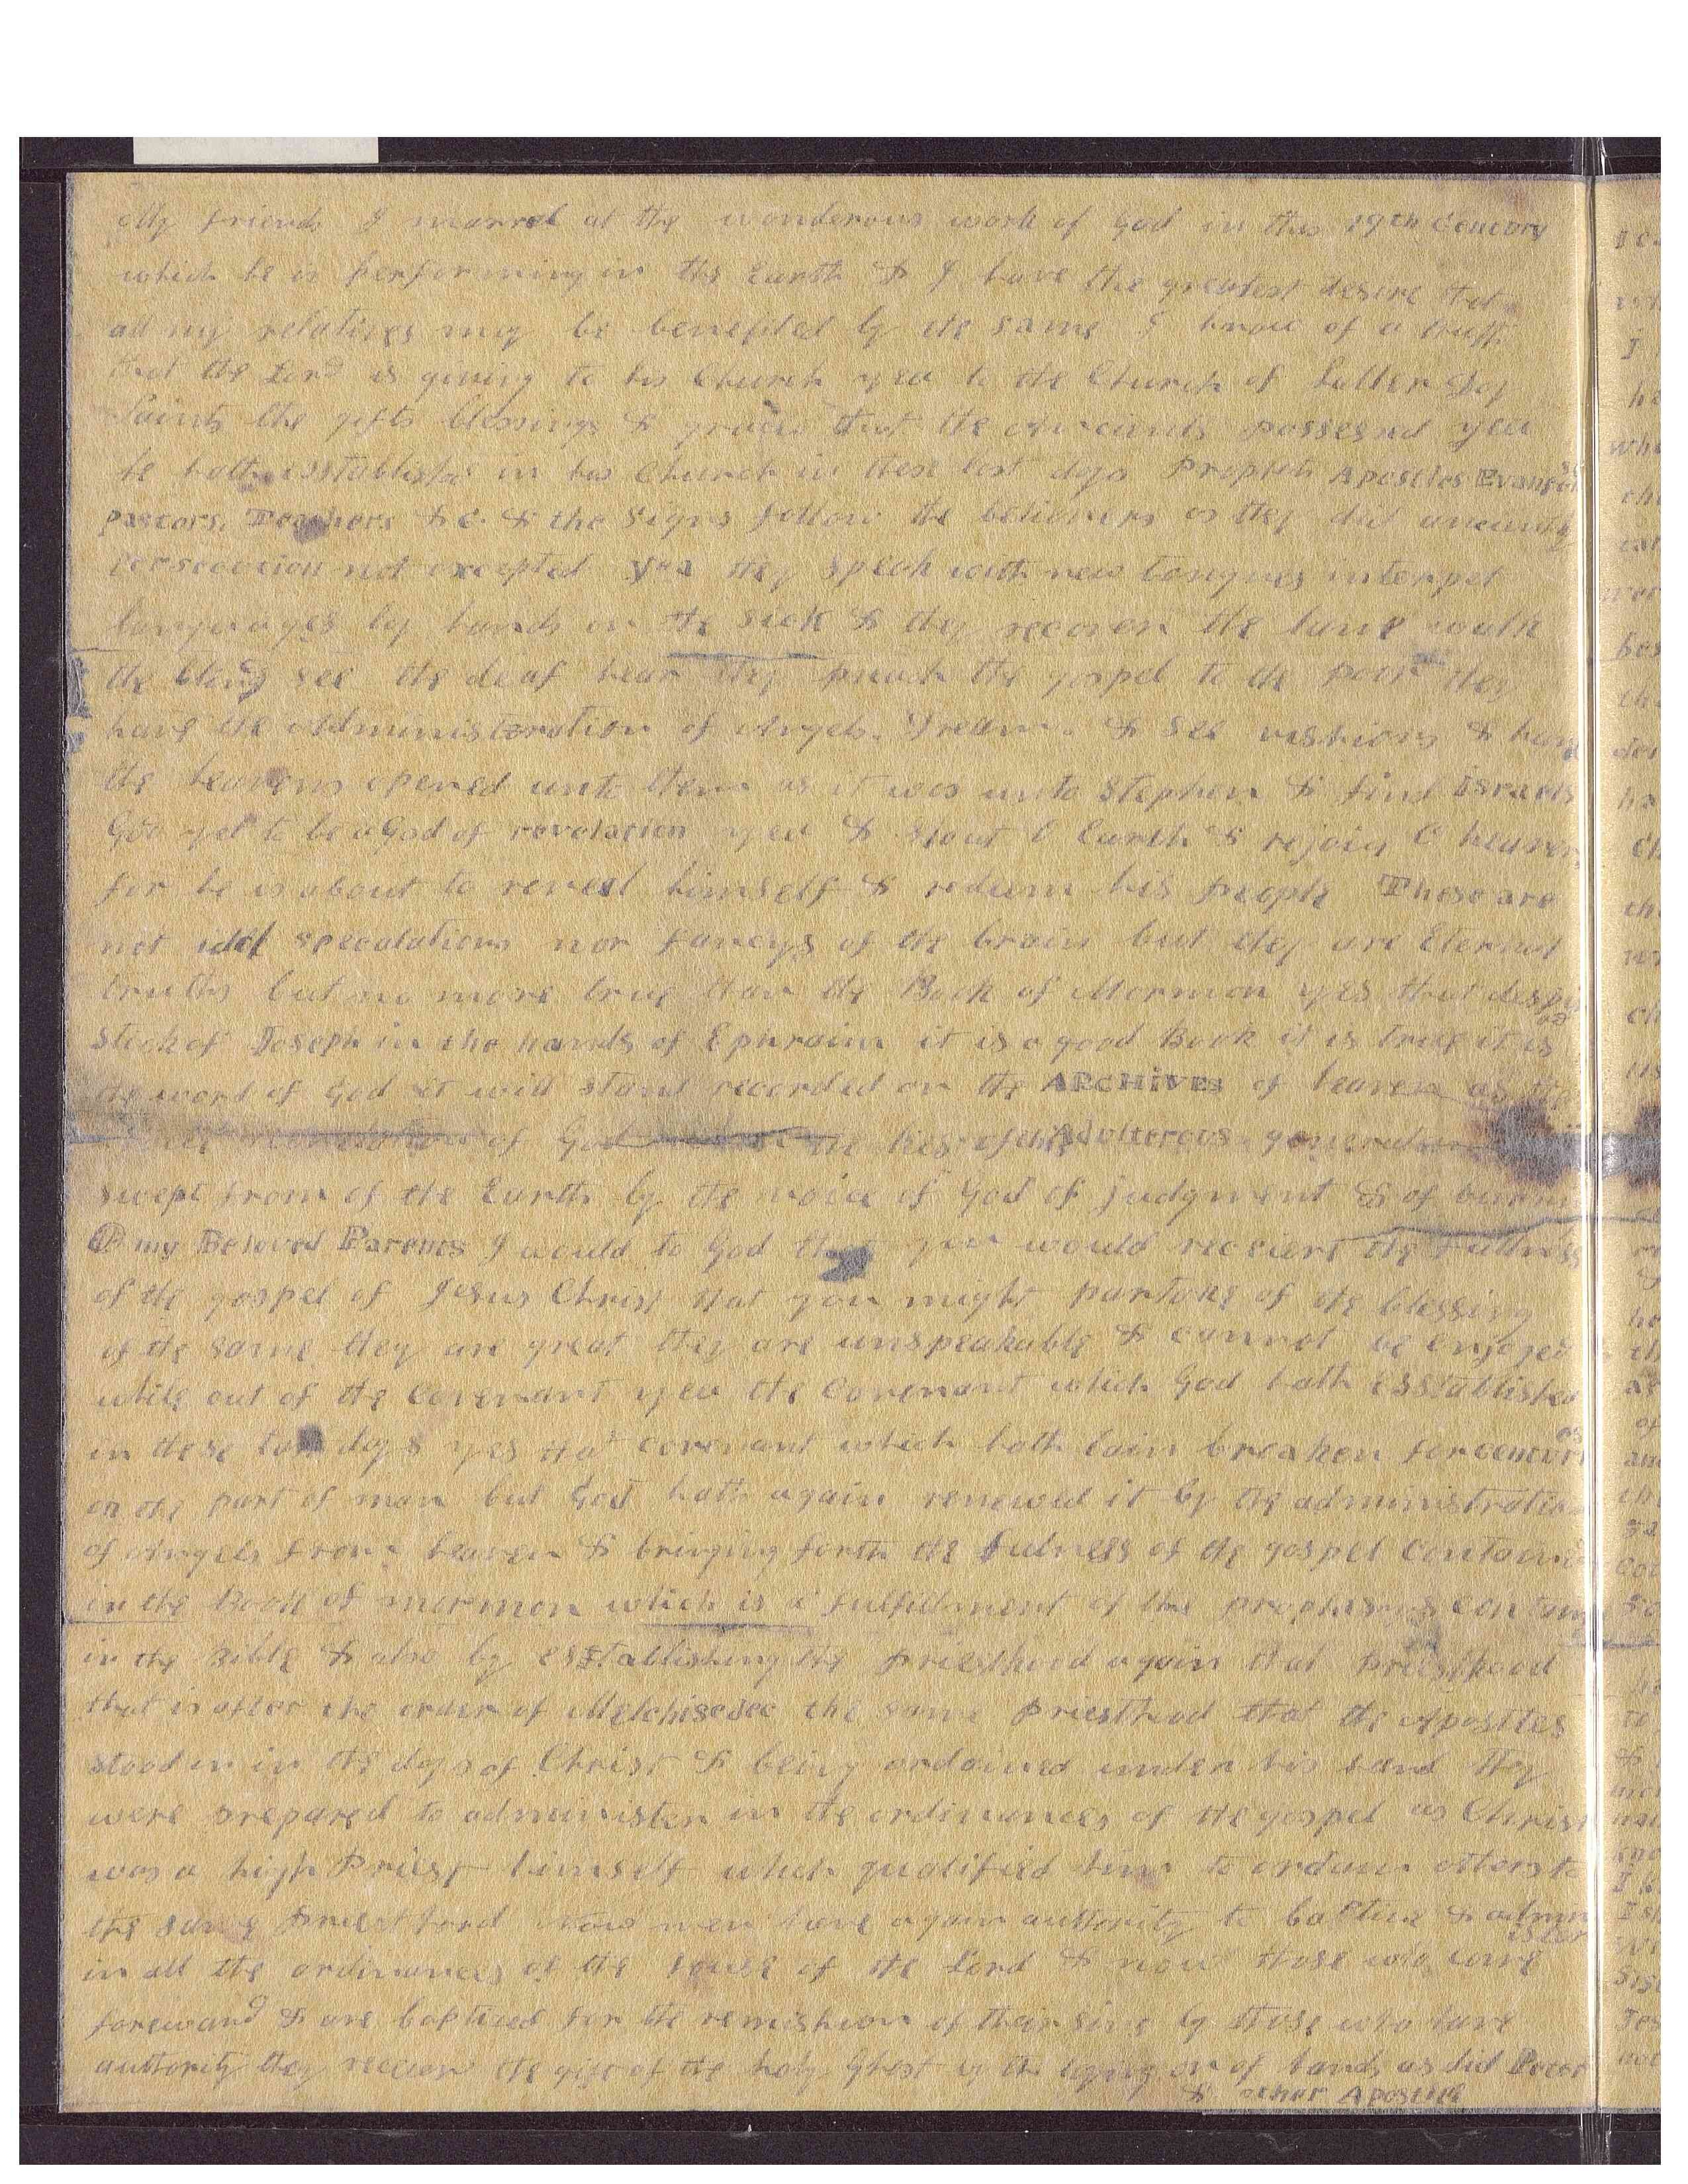 My friends I marvel at the wonderous work of God in this 19th Centory
which he is performing in the Earth & I have the greatest desire that
all my relatives may be benefited by the same I know of a truth
that the Lord is giving to his Church yea to the Church of Latter Day
Saints the gifts blessings & graces that the anciants possesed yea
he hath esstablish in his Church in these last days Prophets Apostles Evangel
pastors. Teachers &c. & the signs follow the believers as they did anciently
persecution not excepted yea they speak with new tongues interpet
languages lay hands on the sick & they recover the lame walk
the blind see the deaf hear they preach the gospel to the poor they
have the addministeration of Angels. Dream. & see vishions & have
the heavens opened unto them as it was unto Stephen & find Israels
God yet to be a God of revolation yea & shout O Earth & rejoice O heavens
for he is about to reveal himself & redeem his people These are
not idel speculations nor fancys of the brain but they are Eternal
truths but no more true than the Book of Mormon yes that despis
ed
stick of Joseph in the hands of Ephraim it is a good Book it is true it is
the word of God it will stand recorded on the ARCHIVES of heaven as the
of God the lies of this Adulterous generation
swept from of the Earth by the voice of God of judgment & of burni
O my Beloved Parents I would to God that you would recieve the fullness
of the gospel of Jesus Christ that you might partake of the blessing
of the same they are great they are unspeakable & cannot be enjoyed
while out of the covenant yea the Covenant which God hath esstablished
in these last days yes that covenant which hath lain breaken for centuri
es
on the part of man but God hath again renewed it by the administration
of Angels from heaven & bringing forth the fulness of the gospel contain
in the Book of mormon which is a fulfillment of the prophesyes contain
in the Bible & also by esstablishing the priesthood again that priesthood
that is after the order of Melchisedec the same priesthood that the Apostles
stood in in the days of Christ & being ordained under his hand they
were prepared to administer in the ordinances of the gospel as Christ
was a high Priest himself which qualified him to ordain others to
the same priesthood now men have again authority to baptise & admin
ister
in all the ordinances of the house of the Lord & now those who come
foreward & are baptised for the remishion of their sins by those who have
authority they recieve the gift of the holy Ghost by the laying on of hands as did Peter
& other Apostles